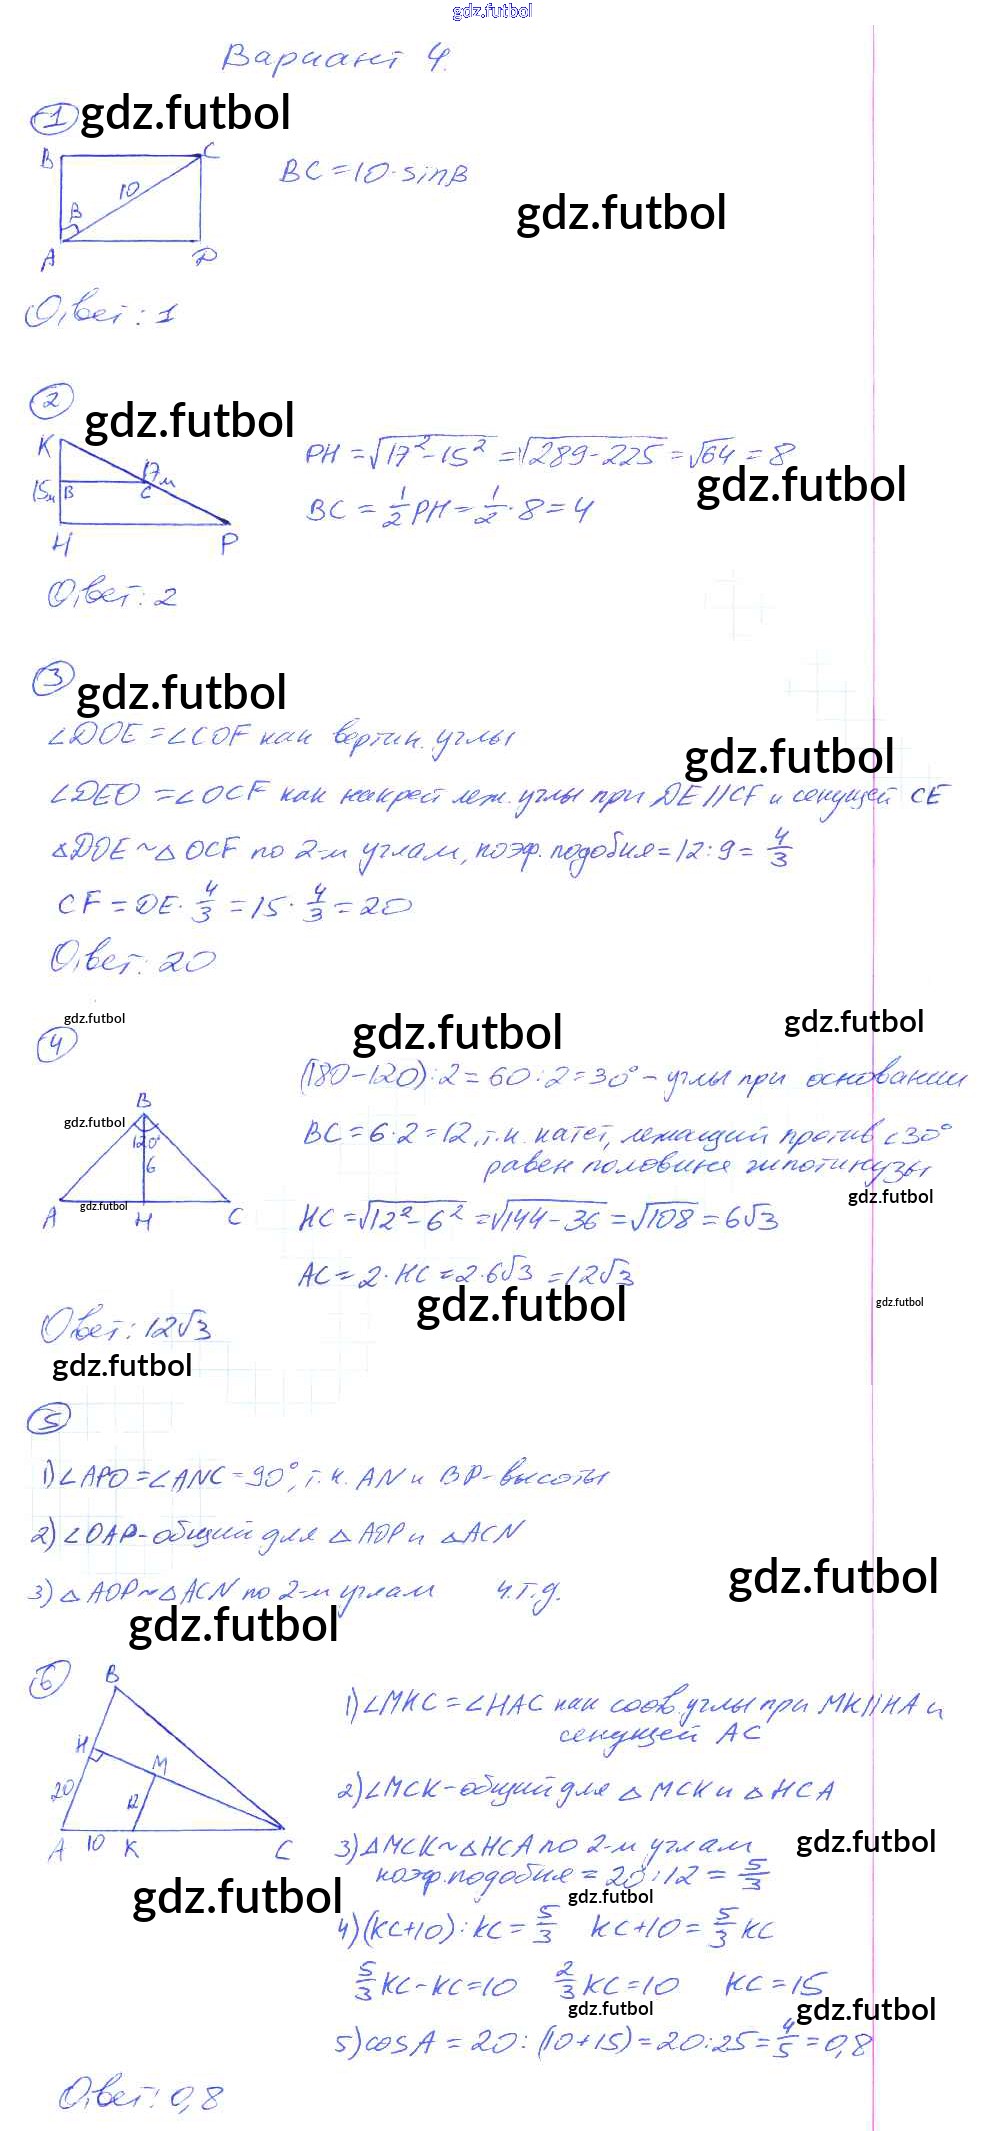 gdz.futbol
Вариант 4.
1 gdz.futbol
B C
10
β
A D
BC = 10 · sinβ
gdz.futbol
Ответ: 1
2 gdz.futbol
K
17м
15м B C
H P
PH = √17² - 15² = √289 - 225 = √64 = 8
gdz.futbol
BC = 1/2 PH = 1/2 · 8 = 4
Ответ: 2
3 gdz.futbol
∠DOE = ∠COF как вертик. углы
gdz.futbol
∠DEO = ∠OCF как накрест леж. углы при DE || CF и секущей CE
△DOE ~ △OCF по 2-м углам, коэф. подобия = 12 : 9 = 4/3
CF = DE · 4/3 = 15 · 4/3 = 20
Ответ: 20
gdz.futbol gdz.futbol gdz.futbol
4
B
gdz.futbol
120°
6
A gdz.futbol H C
(180 - 120) : 2 = 60 : 2 = 30° - углы при основании
BC = 6 · 2 = 12, т.к. катет, лежащий против ∠30°
равен половине гипотинузы
gdz.futbol
HC = √12² - 6² = √144 - 36 = √108 = 6√3
AC = 2 · HC = 2 · 6√3 = 12√3
gdz.futbol gdz.futbol
Ответ: 12√3
gdz.futbol
5
1) ∠APO = ∠ANC = 90°, т.к. AN и BP - высоты
2) ∠OAP - общий для △AOP и △ACN
gdz.futbol
3) △AOP ~ △ACN по 2-м углам ч.т.д.
gdz.futbol
6
B
H M
20 12
A 10 K C
1) ∠MKC = ∠HAC как соов. углы при MK || HA и
секущей AC
2) ∠MCK - общий для △MCK и △HCA
3) △MCK ~ △HCA по 2-м углам
gdz.futbol
коэф. подобия = 20 : 12 = 5/3
gdz.futbol gdz.futbol
4) (KC+10) : KC = 5/3 KC+10 = 5/3 KC
5/3 KC - KC = 10 2/3 KC = 10 KC = 15
gdz.futbol gdz.futbol
5) cosA = 20 : (10 + 15) = 20 : 25 = 4/5 = 0,8
Ответ: 0,8